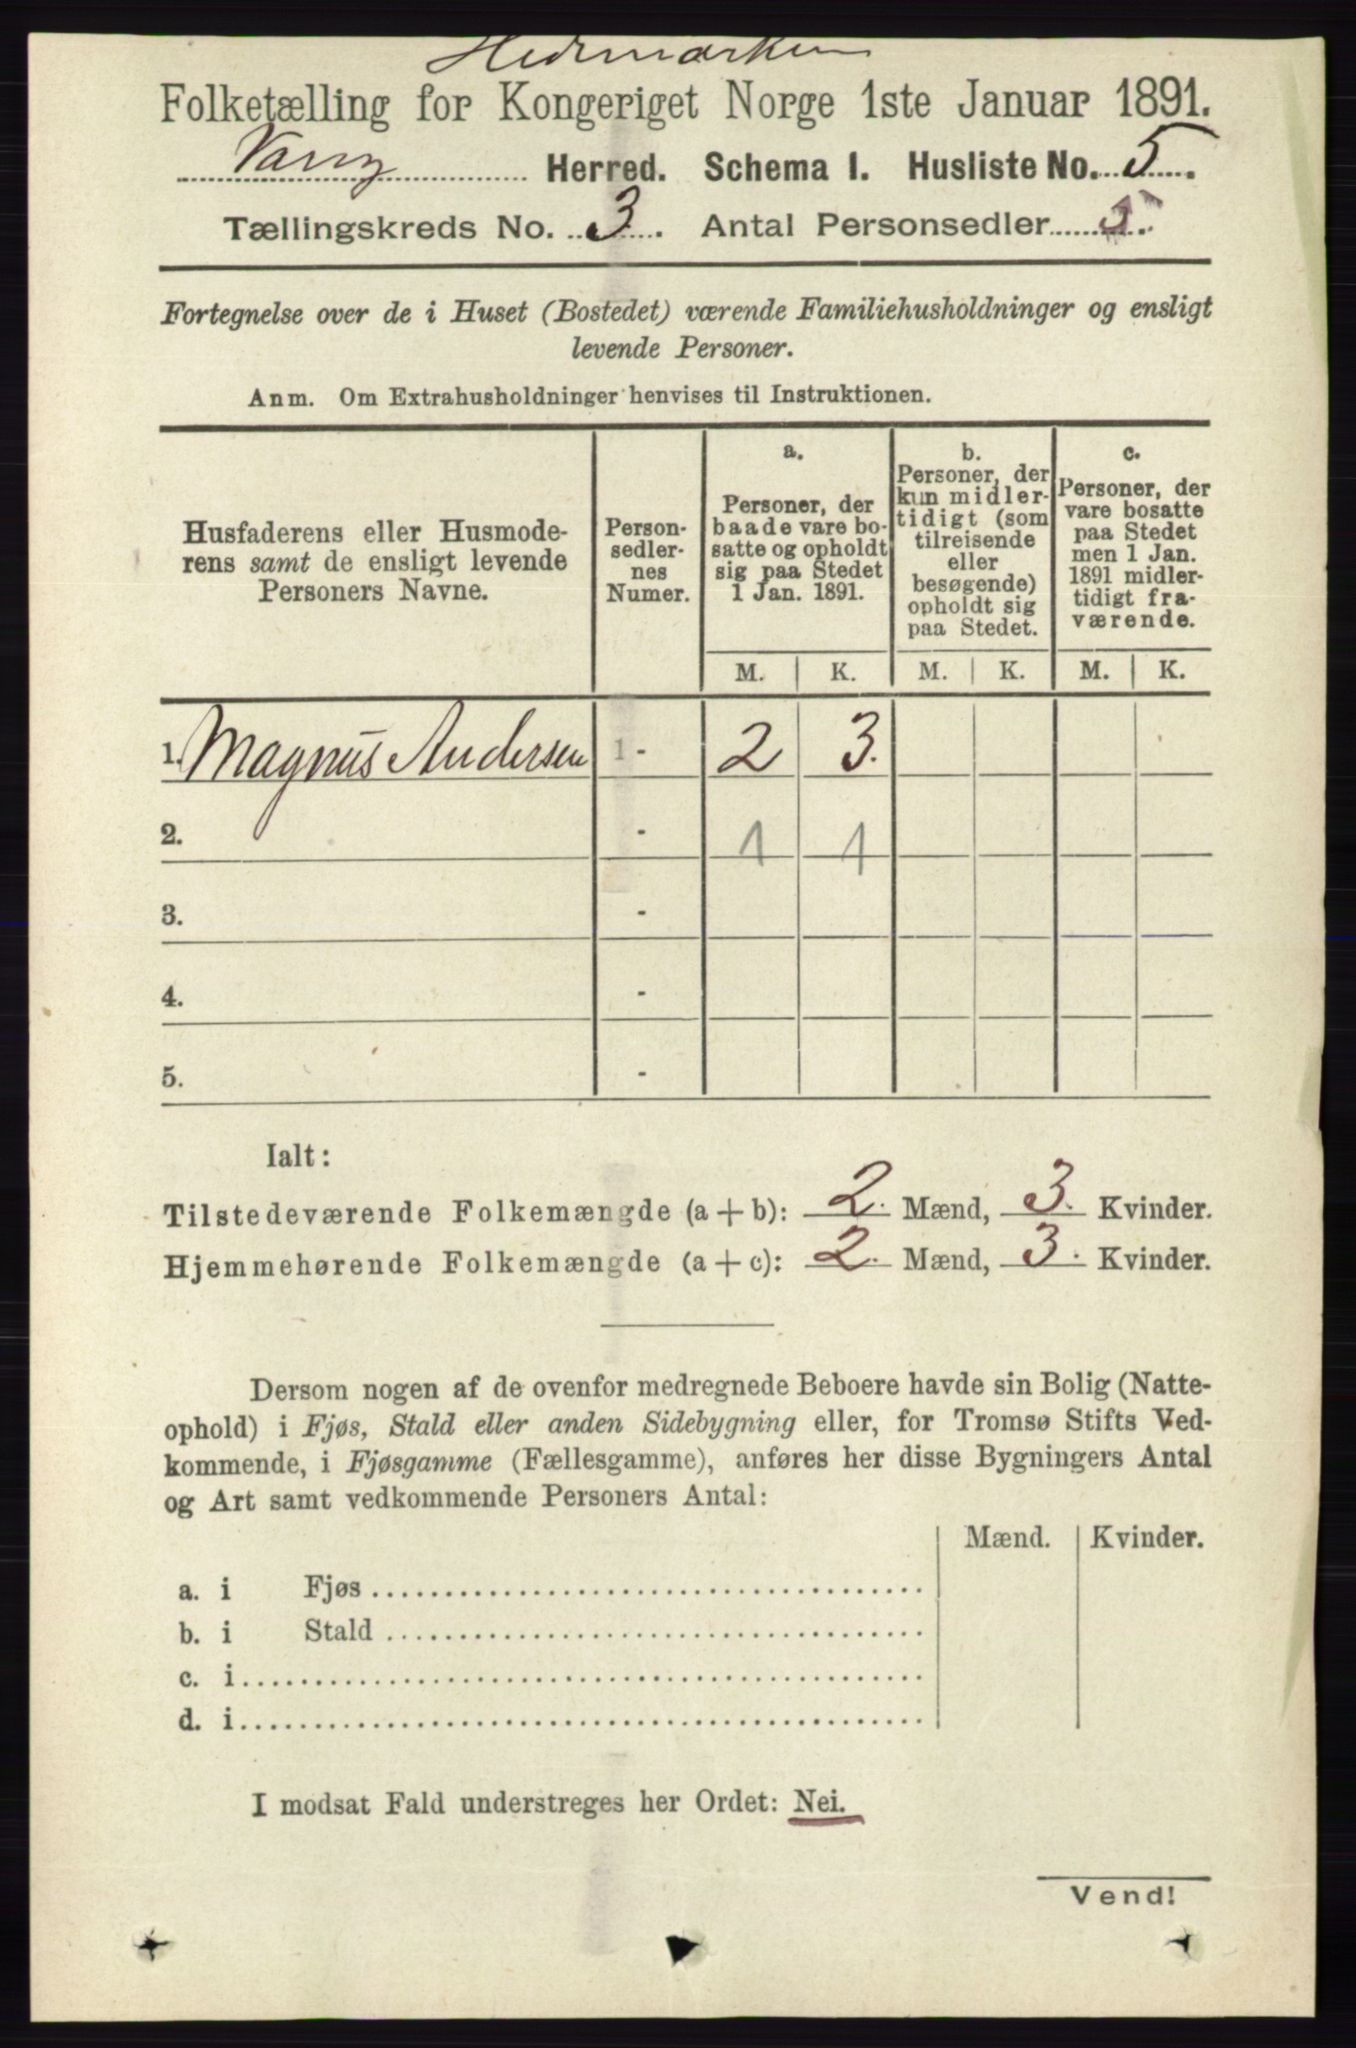 Hedmarken
Folketælling for Kongeriget Norge 1ste Januar 1891.
Vang Herred. Schema I. Husliste No. 5.
Tællingskreds No. 3. Antal Personsedler 5.
Fortegnelse over de i Huset (Bostedet) værende Familiehusholdninger og ensligt
levende Personer.
Anm. Om Extrahusholdninger henvises til Instruktionen.
Husfaderens eller Husmode-
rens samt de ensligt levende
Personers Navne.
Person-
sedler-
nes
Numer.
a.
Personer, der
baade vare bo-
satte og opholdt
sig paa Stedet
1 Jan. 1891.
b.
Personer, der
kun midler-
tidigt (som
tilreisende
eller
besøgende)
opholdt sig
paa Stedet.
c.
Personer, der
vare bosatte
paa Stedet
men 1 Jan.
1891 midler-
tidigt fra-
værende.
M. K. M. K. M. K.
1. Magnus Andersen 1 - 2 3.
2. - 1 1
3. -
4. -
5. -
Ialt:
Tilstedeværende Folkemængde (a + b): 2. Mænd, 3. Kvinder.
Hjemmehørende Folkemængde (a + c): 2. Mænd, 3. Kvinder.
Dersom nogen af de ovenfor medregnede Beboere havde sin Bolig (Natte-
ophold) i Fjøs, Stald eller anden Sidebygning eller, for Tromsø Stifts Ved-
kommende, i Fjøsgamme (Fællesgamme), anføres her disse Bygningers Antal
og Art samt vedkommende Personers Antal:
Mænd. Kvinder.
a. i Fjøs
b. i Stald
c. i
d. i
I modsat Fald understreges her Ordet: Nei.
Vend!